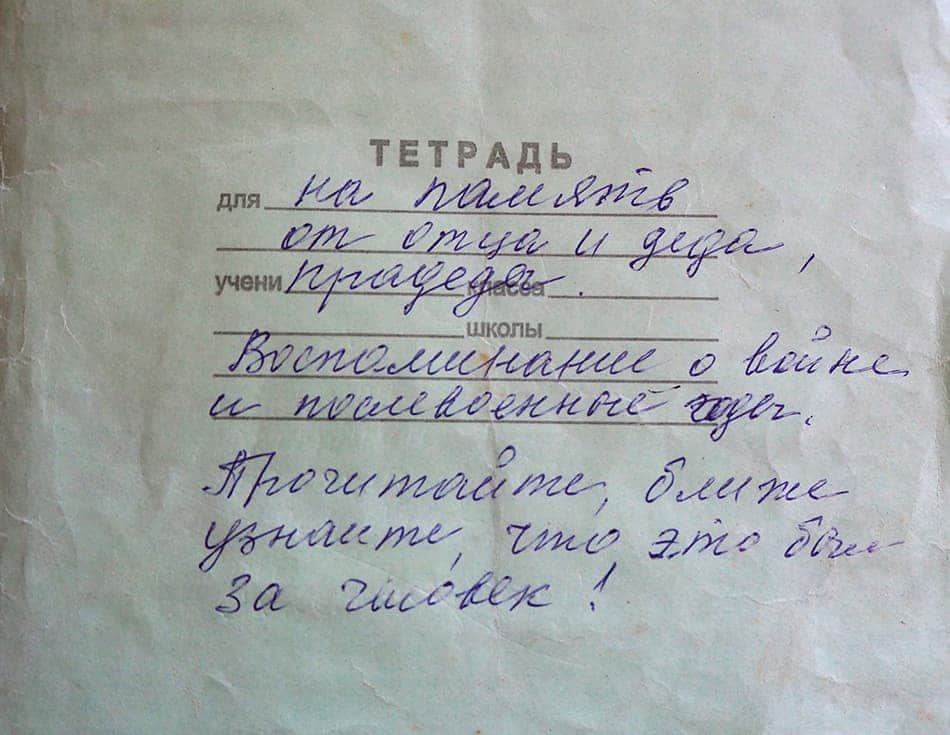 ТЕТРАДЬ
для на память
от отца и деда,
учени прадеда. класса
школы
Воспоминание о войне
и послевоенные годы.
Прочитайте, ближе
узнаите, что это был
за человек!